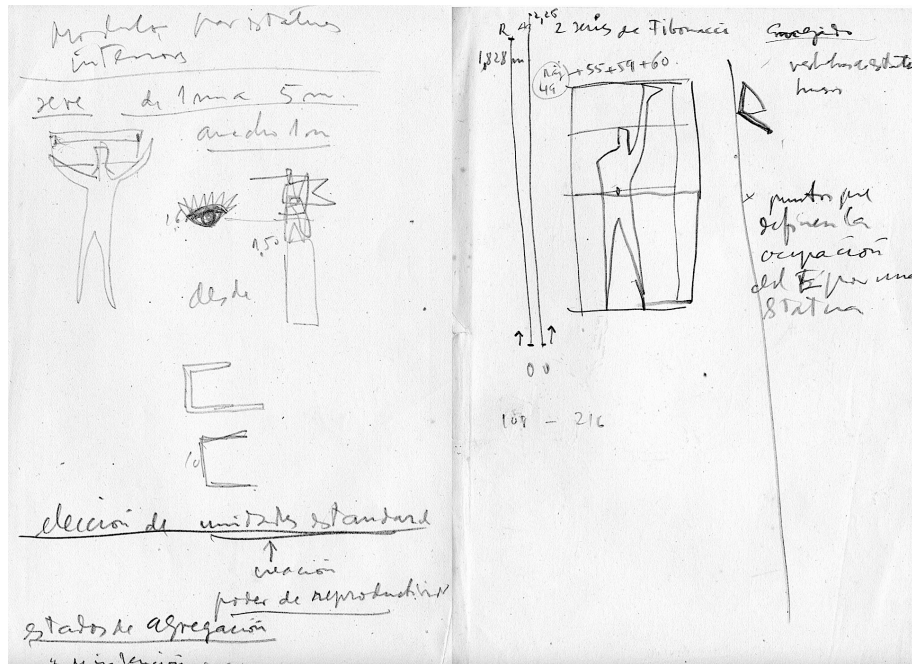 modulos por estaturas
interiores
serie de 1 m a 5 m.
ancho 1 m
1,50
desde
10
elección de unidades estandard
↑
creación
poder de reproductividad
estados de agregación
R A 2,26 2 series de Fibonacci
1,828 m
+55+59+60
49
x puntos que
definen la
ocupación
del E por una
statura
↑ ↑
0 0
108 - 216